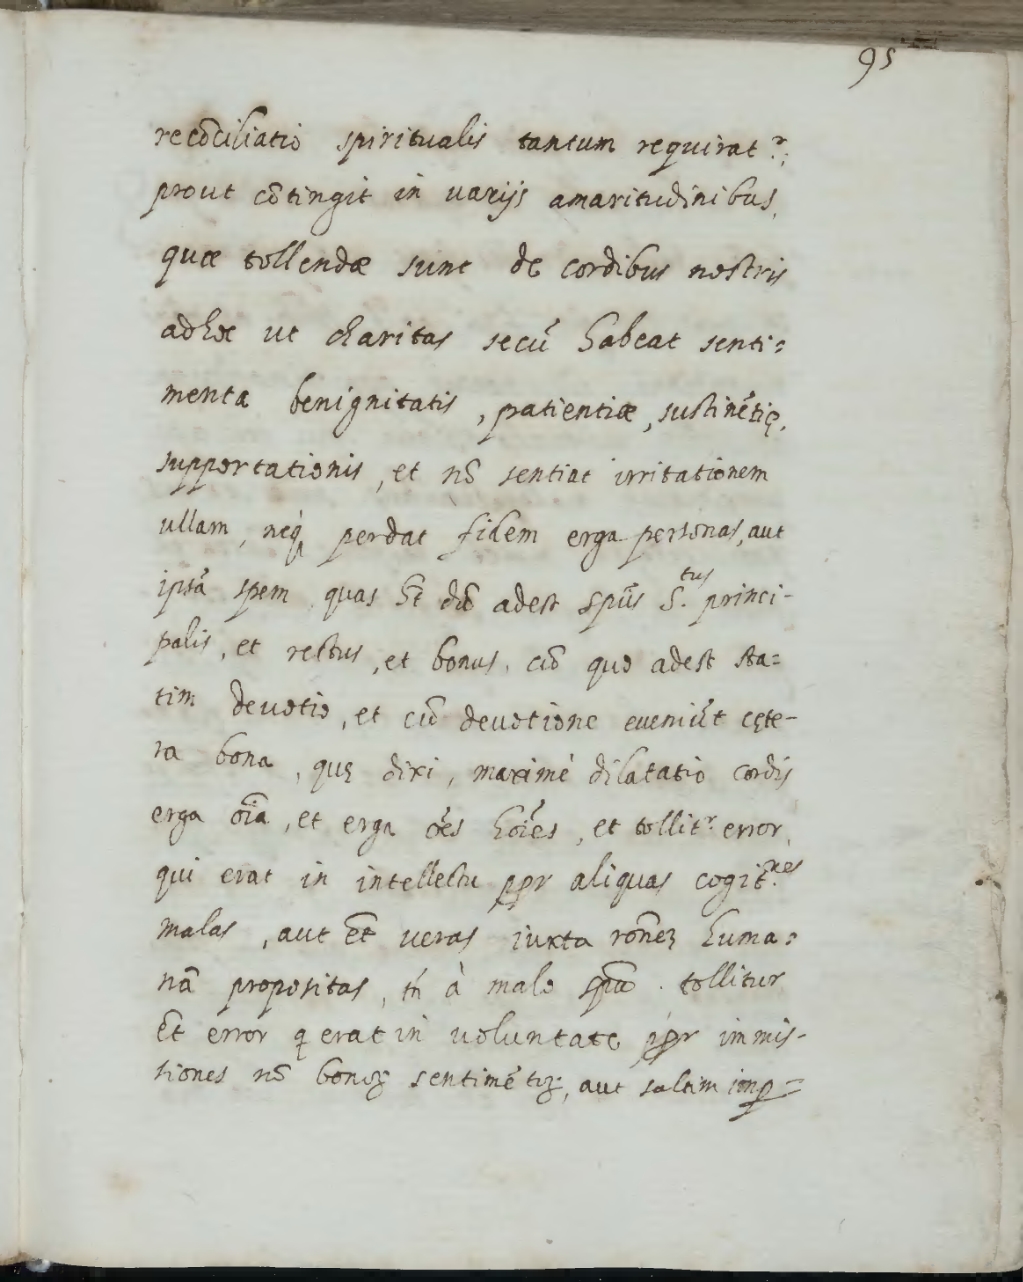 95
recōciliatio spiritualis tantum requirat.r;
prout cōtingit in uarijs amaritudinibus,
quæ tollendæ sunt de cordibus nostris
adhoc ut charitas secū habeat senti=
menta benignitatis, patientiæ, sustinētię,
supportationis, et nō sentiat irritationem
ullam, neq̨ perdat fidem erga personas, aut
ipsā spem, quas ht̄ dū adest spūs S.tus princi-
palis, et rectus, et bonus, cū quo adest sta=
tim deuotio, et cū deuotione eueniūt cęte-
ra bona, quę dixi, maximè dilatatio cordis
erga oīa, et erga oēs hoīes, et tollit.r error,
qui erat in intellectu ꝓpr aliquas cogit.nes
malas, aut et̄ ueras iuxta rōnez huma=
nā propositas, tn̄ à malo spū. tollitur
et̄ error q erat in uoluntate ꝓpr immis-
siones nō bonoꝝ sentimētoꝝ, aut saltim imp=